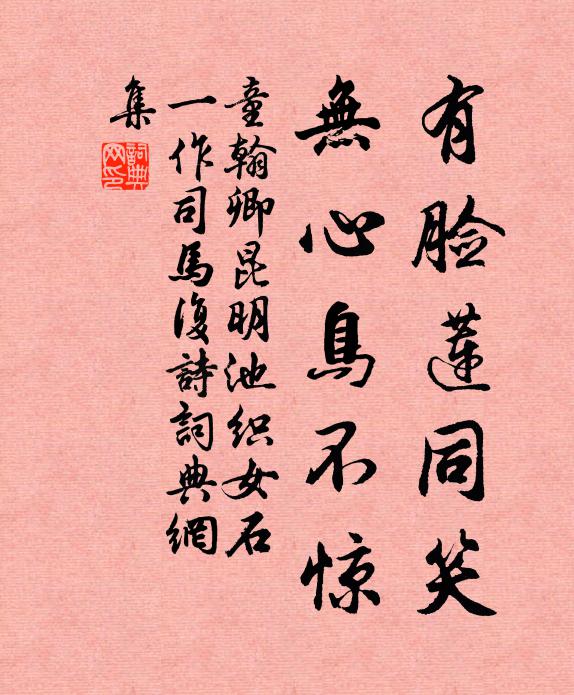 有脸蓮同笑
無心鳥不惊
童翰卿昆明池织女石
一作司馬復詩詞典網
集
詞典網印